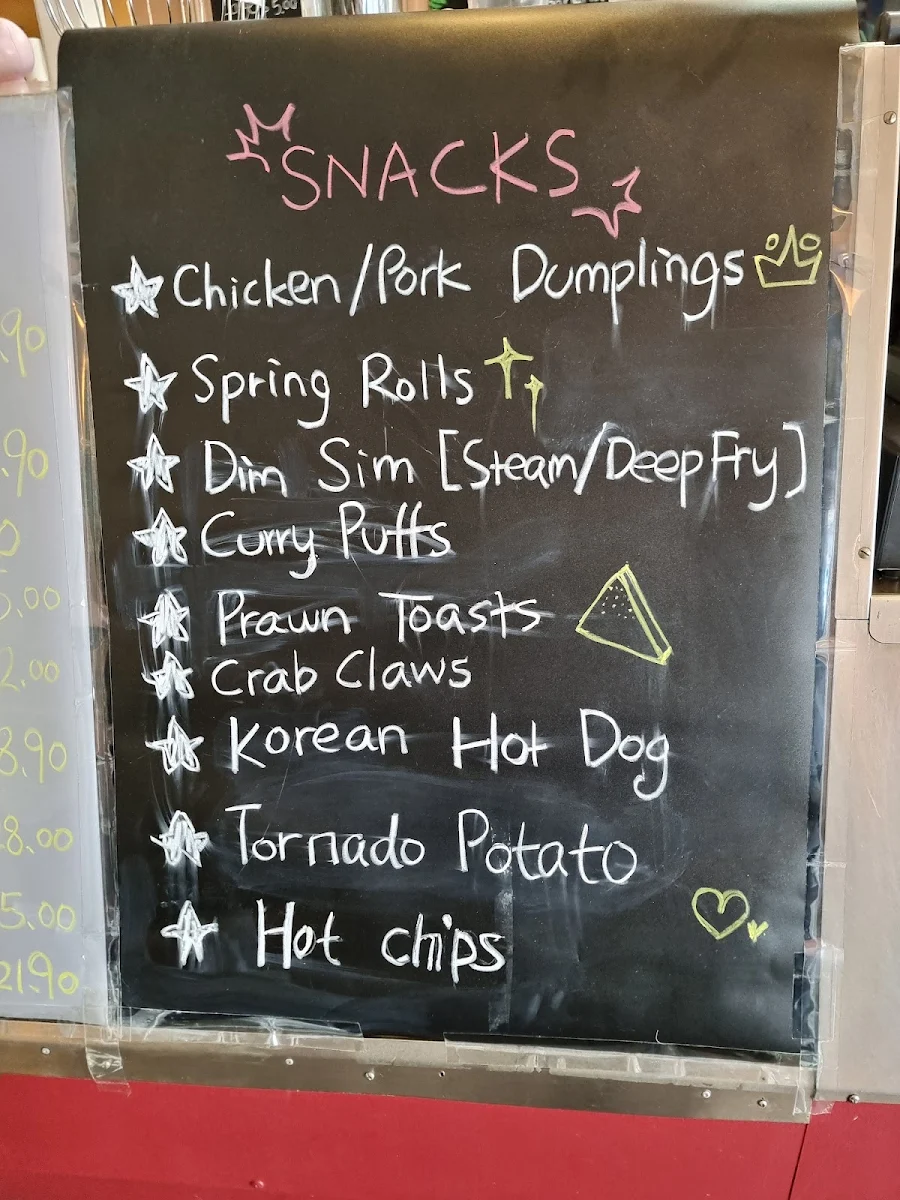 5.00
SNACKS
Chicken/Pork Dumplings
Spring Rolls
Dim Sim [Steam/Deep Fry]
Curry Puffs
Prawn Toasts
Crab Claws
Korean Hot Dog
Tornado Potato
Hot chips
.90
.90
0
5.00
2.00
8.90
8.00
5.00
21.90